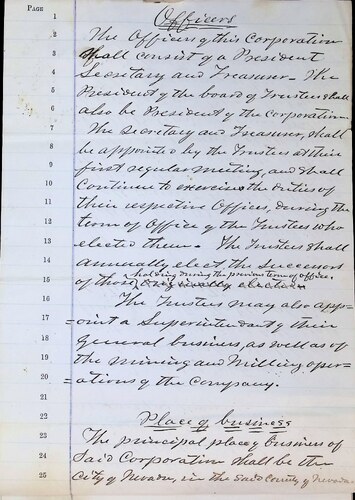 PAGE
1 Officers
2 The Officers of this Corporation
3 Shall consist of a President
4 Secretary and Treasurer. The
5 President of the board of Trustees shall
6 also be President of the corporation.
7 The Secretary and Treasurer, shall
8 be appointed by the Trustees at their
9 first regular meeting, and shall
10 Continue to exercise the duties of
11 their respective Offices, during the
12 term of Office of the Trustees who
13 elected them. The Trustees shall
14 annually elect, the successors
holding during the previous term of office.
15 of those originally elected
16 The Trustees may also app-
17 =oint a Superintendent of their
18 General business, as well as of
19 the mining and Milling oper-
20 =ations of the Company.
21
22 Place of business
23 The principal place of business of
24 Said Corporation shall be the
25 City of Nevada, in the Said County of Nevada